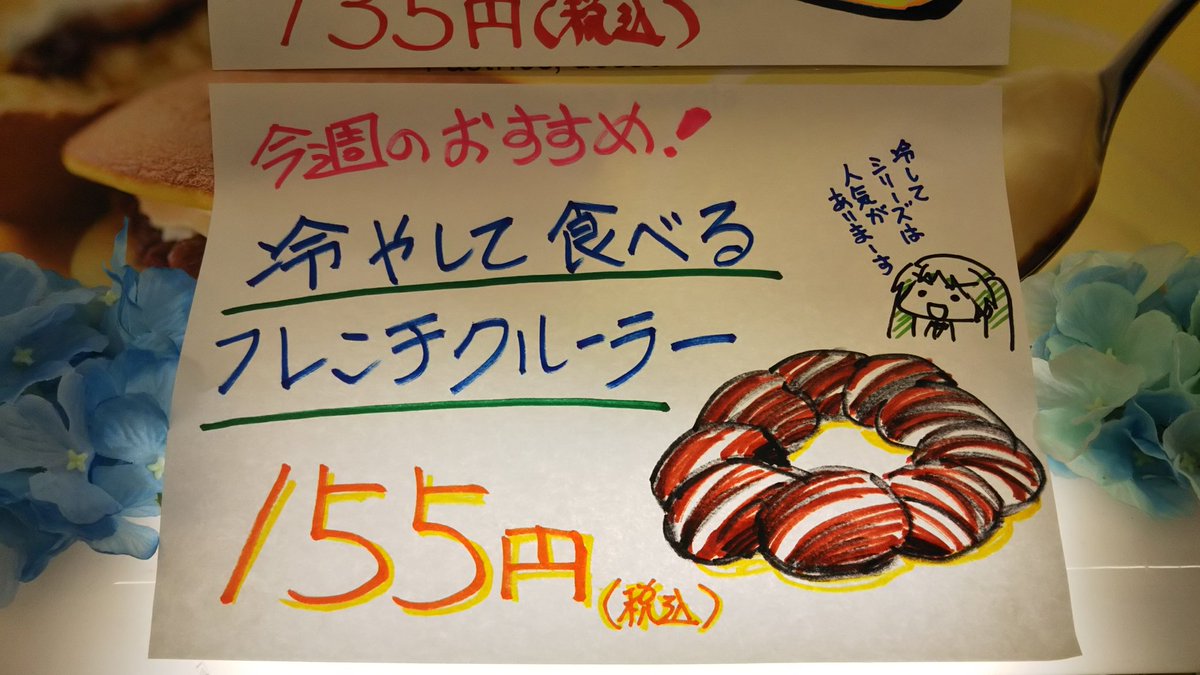 135円(税込)
今週のおすすめ!
冷やして食べる
フレンチクルーラー
155円
(税込)
冷して
シリーズは
人気が
ありまーす